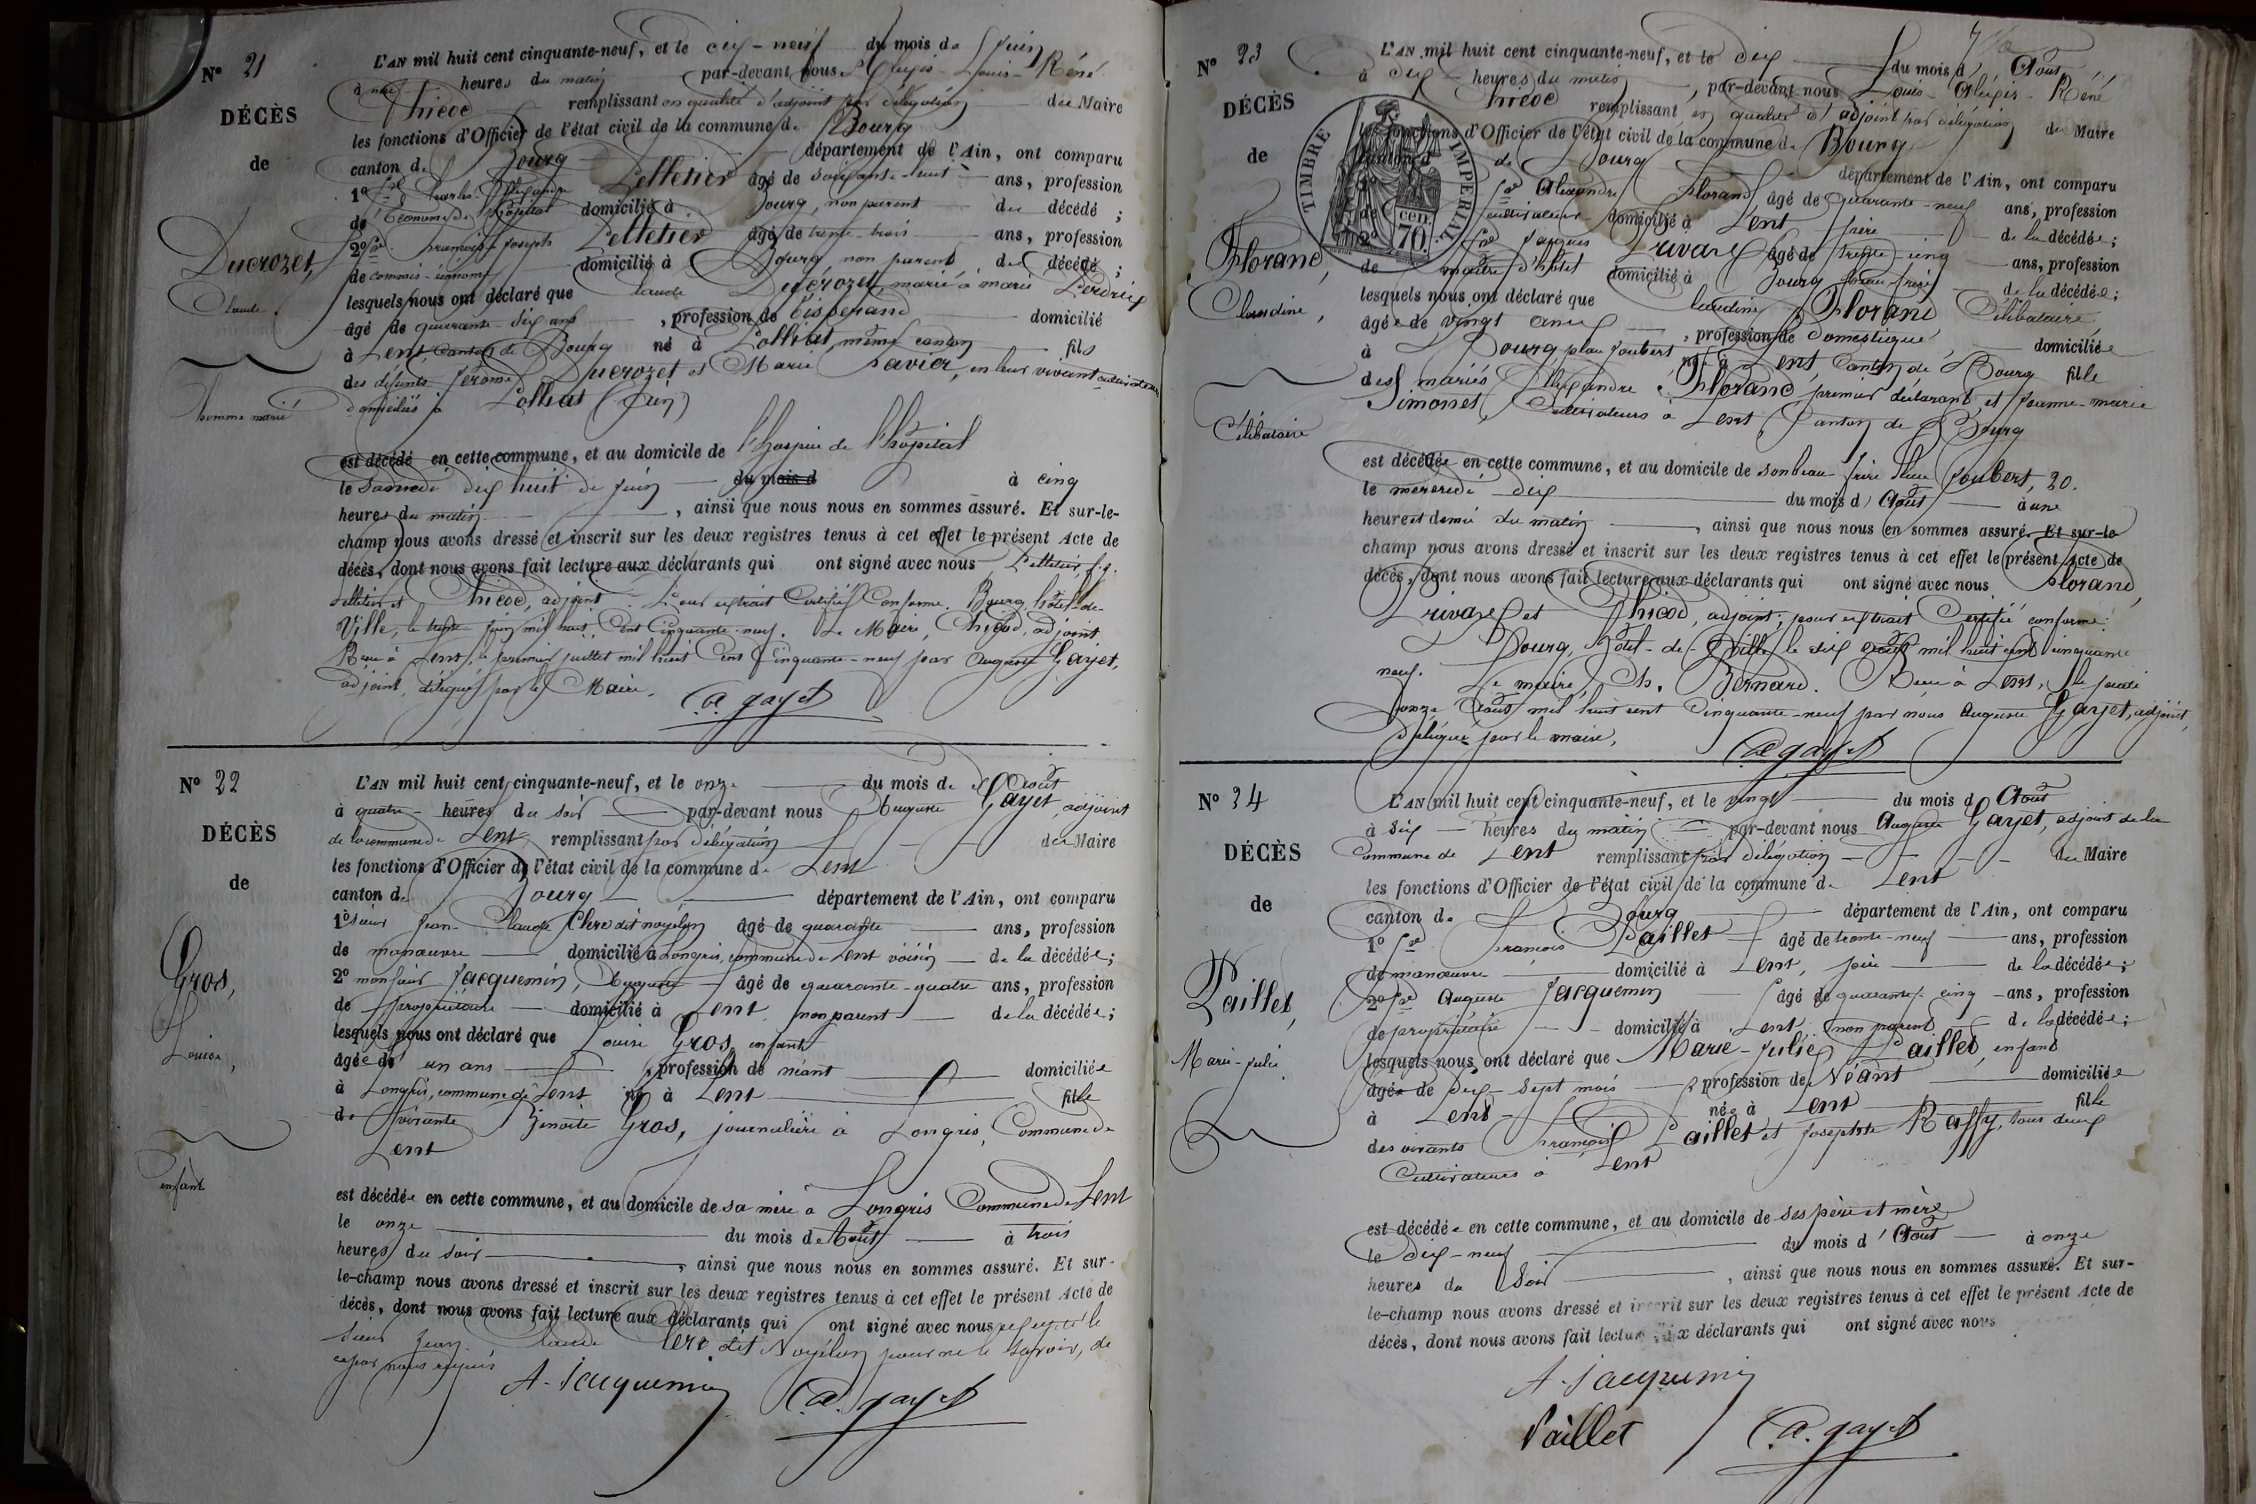 N° 21
DÉCÈS
de
Ducrozet,
Claude.
homme marié
L'AN mil huit cent cinquante-neuf, et le dix-neuf du mois de Juin
à neuf heures du matin par-devant nous Louis René
Chicod remplissant en qualité d'adjoint par délégation du Maire
les fonctions d'Officier de l'état civil de la commune de Bourg
canton de Bourg département de l'Ain, ont comparu
1° Sr Charles Alexandre Pelletier âgé de soixante-huit ans, profession
de l'économe de l'hôpital domicilié à Bourg, non parent du décédé ;
2° Sr François Joseph Pelletier âgé de trente-trois ans, profession
de commis-économe domicilié à Bourg non parent du décédé ;
lesquels nous ont déclaré que Claude Ducrozet, marié à marie Perdrix
âgé de quarante six ans, profession de Tisserand domicilié
à Lent, Canton de Bourg né à Polliat, même canton fils
des défunts Jérôme Ducrozet et Marie Pavier, en leur vivant cultivateurs
domiciliés à Polliat (Ain)
est décédé en cette commune, et au domicile de l'hospice de l'hôpital
le samedi dix huit de juin du mois d à cinq
heures du matin, ainsi que nous nous en sommes assuré. Et sur-le-
champ nous avons dressé et inscrit sur les deux registres tenus à cet effet le présent Acte de
décès, dont nous avons fait lecture aux déclarants qui ont signé avec nous Pelletier,
Pelletier et Chicod, adjoint. Pour extrait Certifié Conforme. Bourg, hôtel-de-
Ville, le trente juin mil huit Cent Cinquante-neuf. Le Maire, Chicod, adjoint
Reçu à Lent, le premier juillet mil huit Cent Cinquante-neuf par Auguste Gayet,
adjoint, délégué par le Maire.
A. gayet
N° 22
DÉCÈS
de
Gros,
Louise,
enfant
L'AN mil huit cent cinquante-neuf, et le onze du mois de Août
à quatre heures du soir par-devant nous Auguste Gayet, adjoint
de la commune de Lent remplissant par délégation du Maire
les fonctions d'Officier de l'état civil de la commune de Lent
canton de Bourg département de l'Ain, ont comparu
1° sieur Jean-Claude Clerc dit noyélon âgé de quarante ans, profession
de manœuvre domicilié à Longris, commune de Lent voisin de la décédée ;
2° monsieur Jacquemin, Auguste âgé de quarante-quatre ans, profession
de propriétaire domicilié à Lent non parent de la décédée ;
lesquels nous ont déclaré que Louise Gros, enfant
âgée de un ans, profession de néant domiciliée
à Longris, commune de Lent né à Lent fille
de vivante Benoîte Gros, journalière à Longris, Commune de
Lent
est décédée en cette commune, et au domicile de sa mère à Longris Commune de Lent
le onze du mois de Août à trois
heures du soir, ainsi que nous nous en sommes assuré. Et sur-
le-champ nous avons dressé et inscrit sur les deux registres tenus à cet effet le présent Acte de
décès, dont nous avons fait lecture aux déclarants qui ont signé avec nous excepté le
sieur Jean Claude Clerc dit Noyélon pour ne le savoir, de
ce par nous requis
A. Jacquemin
A. gayet
N° 23
DÉCÈS
de
Florand,
Claudine,
Célibataire
TIMBRE IMPÉRIAL
70 cen
L'AN mil huit cent cinquante-neuf, et le dix du mois d'Août
à dix heures du matin, par-devant nous Louis-Alexis-René
Chicod remplissant en qualité d'adjoint par délégation du Maire
les fonctions d'Officier de l'état civil de la commune de Bourg
canton de Bourg département de l'Ain, ont comparu
Sr Alexandre Florand, âgé de quarante-neuf ans, profession
de cultivateur domicilié à Lent père de la décédée ;
2° Sr Jacques Privarel âgé de trente-cinq ans, profession
de maître d'hôtel domicilié à Bourg beau-frère de la décédée ;
lesquels nous ont déclaré que Claudine Florand Célibataire,
âgée de vingt ans, profession de Domestique domiciliée
à Bourg, place Joubert née à Lent Canton de Bourg fille
des mariés Alexandre Florand, premier déclarant, et Jeanne-marie
Simonet, Cultivateurs à Lent, Canton de Bourg
est décédée en cette commune, et au domicile de son beau-frère place Joubert, 20.
le mercredi dix du mois d'Août à une
heure et demie du matin, ainsi que nous nous en sommes assuré. Et sur-le-
champ nous avons dressé et inscrit sur les deux registres tenus à cet effet le présent Acte de
décès, dont nous avons fait lecture aux déclarants qui ont signé avec nous Florand,
Privarel et Chicod, adjoint ; pour extrait Certifié conforme
Bourg, Hôtel-de-Ville, le dix août mil huit cent cinquante
neuf. Le maire, Ch. Bernard. Reçu à Lent, le jeudi
onze Août mil huit cent Cinquante-neuf par nous Auguste Gayet, adjoint,
délégué par le maire.
A. gayet
N° 24
DÉCÈS
de
Paillet,
Marie-Julie
L'AN mil huit cent cinquante-neuf, et le vingt du mois d'Août
à six heures du matin par-devant nous Auguste Gayet, adjoint de la
Commune de Lent remplissant par délégation du Maire
les fonctions d'Officier de l'état civil de la commune de Lent
canton de Bourg département de l'Ain, ont comparu
1° Sr François Paillet âgé de trente-neuf ans, profession
de manœuvre domicilié à Lent, père de la décédée ;
2° Sr Auguste Jacquemin âgé de quarante-cinq ans, profession
de propriétaire domicilié à Lent, non parent de la décédée ;
lesquels nous ont déclaré que Marie-Julie Paillet, enfant
âgée de dix-sept mois, profession de Néant domiciliée
à Lent née à Lent fille
des vivants François Paillet et Josephte Raffy, tous deux
Cultivateurs à Lent
est décédée en cette commune, et au domicile de ses père et mère
le dix-neuf du mois d'Août à onze
heures du Soir, ainsi que nous nous en sommes assuré. Et sur-
le-champ nous avons dressé et inscrit sur les deux registres tenus à cet effet le présent Acte de
décès, dont nous avons fait lecture aux déclarants qui ont signé avec nous
A. Jacquemin
Paillet
A. gayet